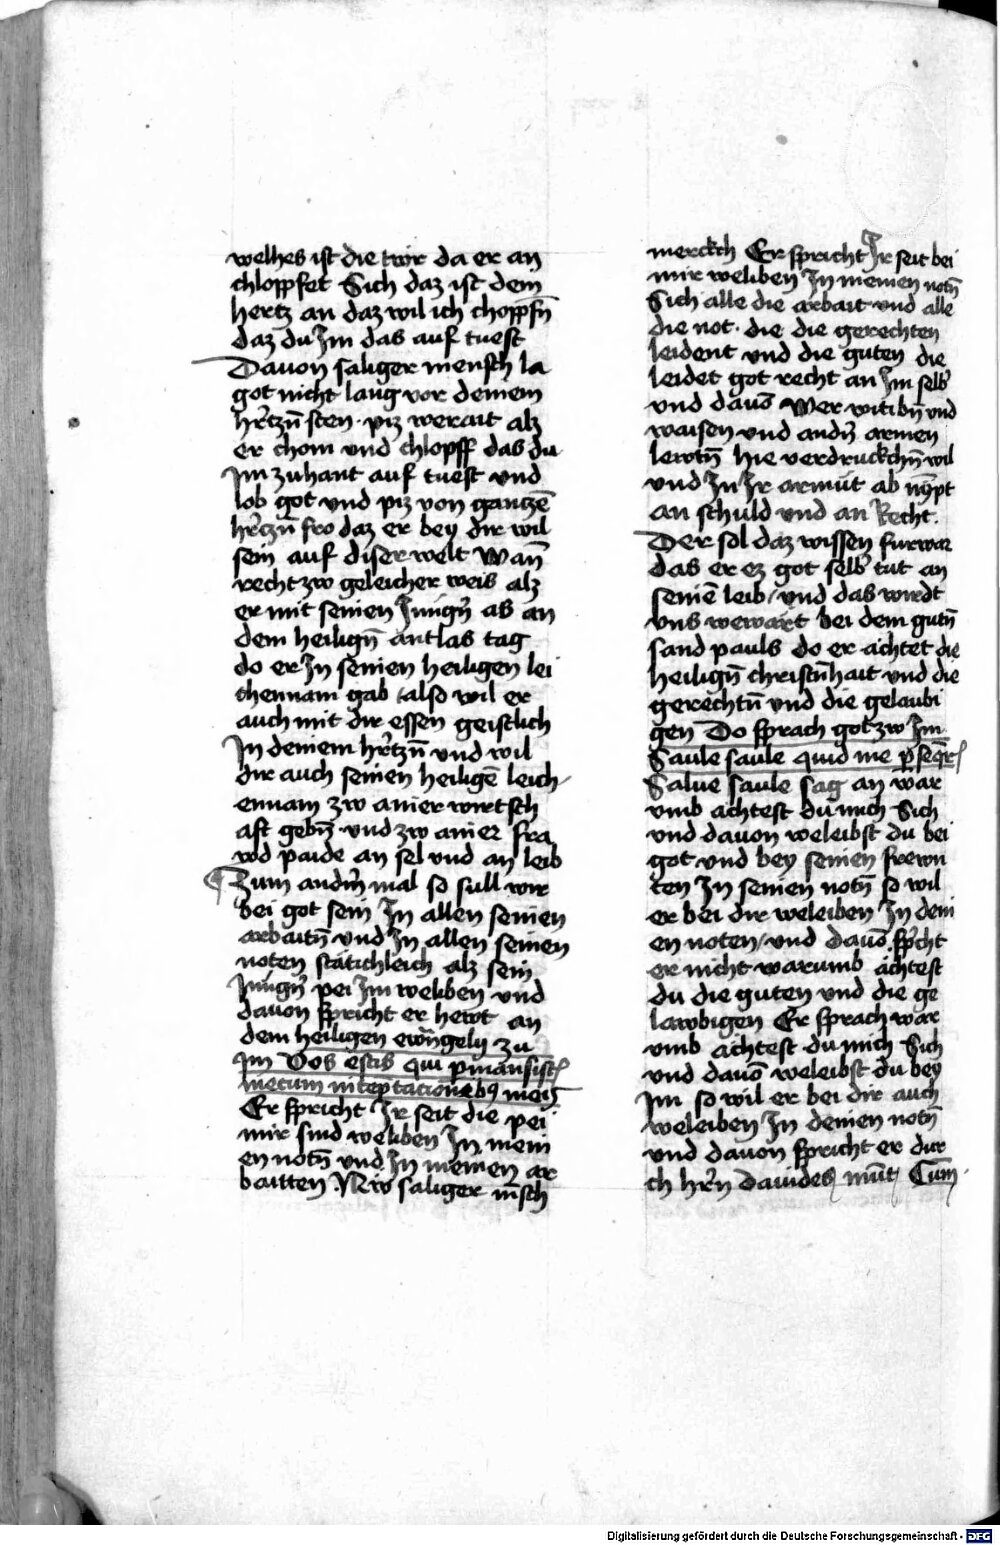 welhes ist die twr da er an
chlopfet Sich daz ist dein
hertz an daz wil ich chopfn̄
daz du Im das auf tuest
Dauon saliger mensch la
got nicht lang vor deinem
hr̄tzn̄ sten · piz werait alz
er chom vnd chlopff das du
Im zuhant auf tuest vnd
lob got vnd piz von gantzē
hr̄tzn̄ fro daz er bey dir wil
sein auf diser welt Wan̄
recht zw geleicher weis alz
er mit seinen Jungn̄ as an
dem heilign̄ antlas tag
do er In seinen heiligen lei
chennam gab / also wil er
auch mit dir essen geistlich
In deinem hr̄tzn̄ vnd wil
dir auch seinen heiligē leich
ennam zw ainer wirtsch
aft gebn̄ vnd zw ainer fra
wd paide an sel vnd an leib
Zum andn̄ mal so sull wir
bei got sein In allen seinen
arbaitn̄ vnd In allen seinen
noten stätichleich alz sein
Jungn̄ pei Im weliben vnd
dauon spricht er hewt an
dem heiligen ewāngely zu
Im Vos estis qui pmansist
mecum in teptationebꝰ meis
Er spricht Ir seit die pei
mir sind weliben In mein
en notn̄ vnd In meinen ar
baitten Nw saliger mēsch
merckch Er spricht Ir seit bei
mir weliben In meinen notn̄
Sich alle die arbait vnd alle
die not · die die gerechten
leident vnd die guten die
leidet got recht an Im selb
vnd dauō Wer witibn̄ vnd
waisen vnd andn̄ armen
lewtn̄ hie verdruckchn̄ wil
vnd In Ir armüt ab nÿpt
an schuld vnd an Recht .
Der sol daz wissen furwar
das er ez got selb tut an
seinē leib / vnd das wirdt
vns wewärt bei dem gutn̄
sand pauls do er achtet die
heilign̄ christn̄hait vnd die
gerechtn̄ vnd die gelaubi
gen Do sprach got zw Im
Saule saule quid me ꝑseqr̄
Salue saule sag an war
vmb achtest du mich Sich
vnd dauon weleibst du bei
got vnd bey seinen frewn
ten In seinen notn̄ so wil
er bei dir weleiben In dein
en noten / vnd dauō sp̄cht
er nicht warumb ächtest
du die guten vnd die ge
lawbigen Er sprach war
vmb achtest du mich Sich
vnd dauō weleibst du bey
Im so wil er bei dir auch
weleiben In deinen notn̄
vnd dauon spricht er dur
ch hr̄n dauides mūt Cum